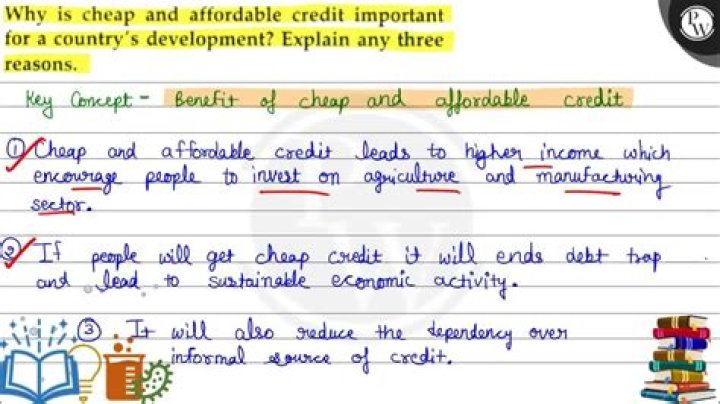 Why is cheap and affordable credit important
for a country's development? Explain any three
reasons.
PW
Key Concept - Benefit of cheap and affordable credit
① Cheap and affordable credit leads to higher income which
encourage people to invest on agriculture and manufacturing
sector.
② If people will get cheap credit it will ends debt trap
and lead to sustainable economic activity.
③ It will also reduce the dependency over
informal source of credit.